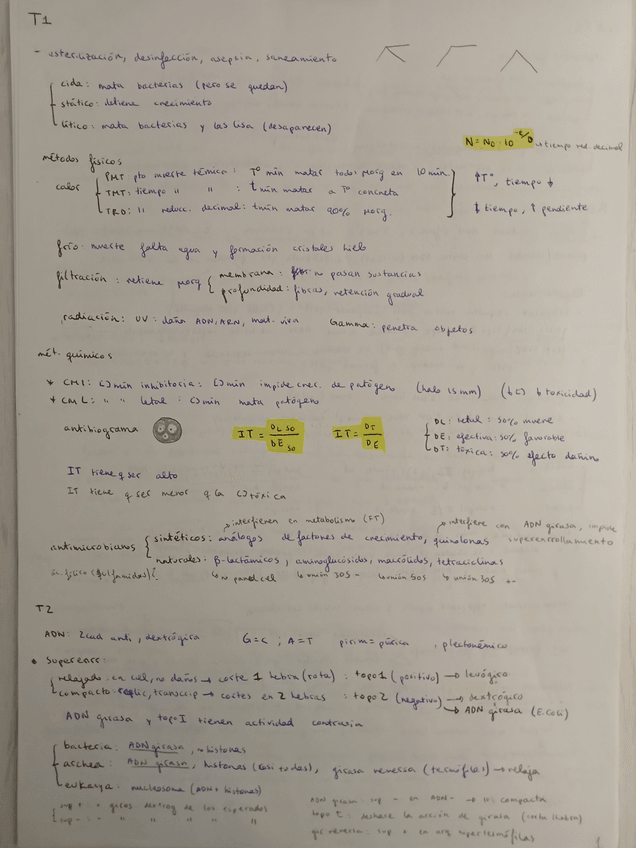 T1
- esterilización, desinfección, asepsia, saneamiento
cida: mata bacterias (pero se quedan)
stático: detiene crecimiento
lítico: mata bacterias y las lisa (desaparecen)
N = N0 · 10^-t/D tiempo red. decimal
métodos físicos
calor
PMT pto muerte térmica: Tº mín matar todos morg en 10 min.
TMT: tiempo " " : t mín matar a Tº concreta
TRD: " reducc. decimal: t mín matar 90% morg.
↑Tº, tiempo ↓
↓ tiempo, ↑ pendiente
frío: muerte falta agua y formación cristales hielo
filtración: retiene morg
membrana: no pasan sustancias
profundidad: fibras, retención gradual
radiación: UV: daña ADN, ARN, mat. viva Gamma: penetra objetos
mét. químicos
* CMI: [] mín inhibitoria: [] mín impide crec. de patógeno (halo 15 mm) (↓[] ↓ toxicidad)
* CML: " " letal: [] mín mata patógeno
antibiograma
IT = DL50 / DE50
IT = DT / DE
DL: letal: 50% muere
DE: efectiva: 50% favorable
DT: tóxica: 50% efecto dañino
IT tiene q ser alto
IT tiene q ser menor q la [] tóxica
interfieren en metabolismo (FT)
interfiere con ADN girasa, impide superenrollamiento
antimicrobianos
sintéticos: análogos de factores de crecimiento, quinolonas
naturales: β-lactámicos, aminoglucósidos, macrólidos, tetraciclinas
(sulfamidas) pared cel unión 30S unión 50S unión 30S
T2
ADN: 2 cad anti, dextrógira G=C ; A=T pirim=púrica, plectonémico
• Superenr:
relajado: en cel, no daños → corte 1 hebra (rota): topo 1 (positivo) → levógiro
compacto: replic, transcrip → cortes en 2 hebras : topo 2 (negativo) → dextrógiro
→ ADN girasa (E. coli)
ADN girasa y topo I tienen actividad contraria
bacteria: ADN girasa, no histonas
archea: ADN girasa, histonas (casi todas), girasa reversa (termófilas) → relaja
eukarya: nucleosoma (ADN + histonas)
sup + : + giros dextrog de los esperados
sup - : - " " " "
ADN girasa: sup - en ADN → lo compacta
topo I: deshace la acción de girasa (corta 1 hebra)
gir reversa: sup + en arq hipertermófilas